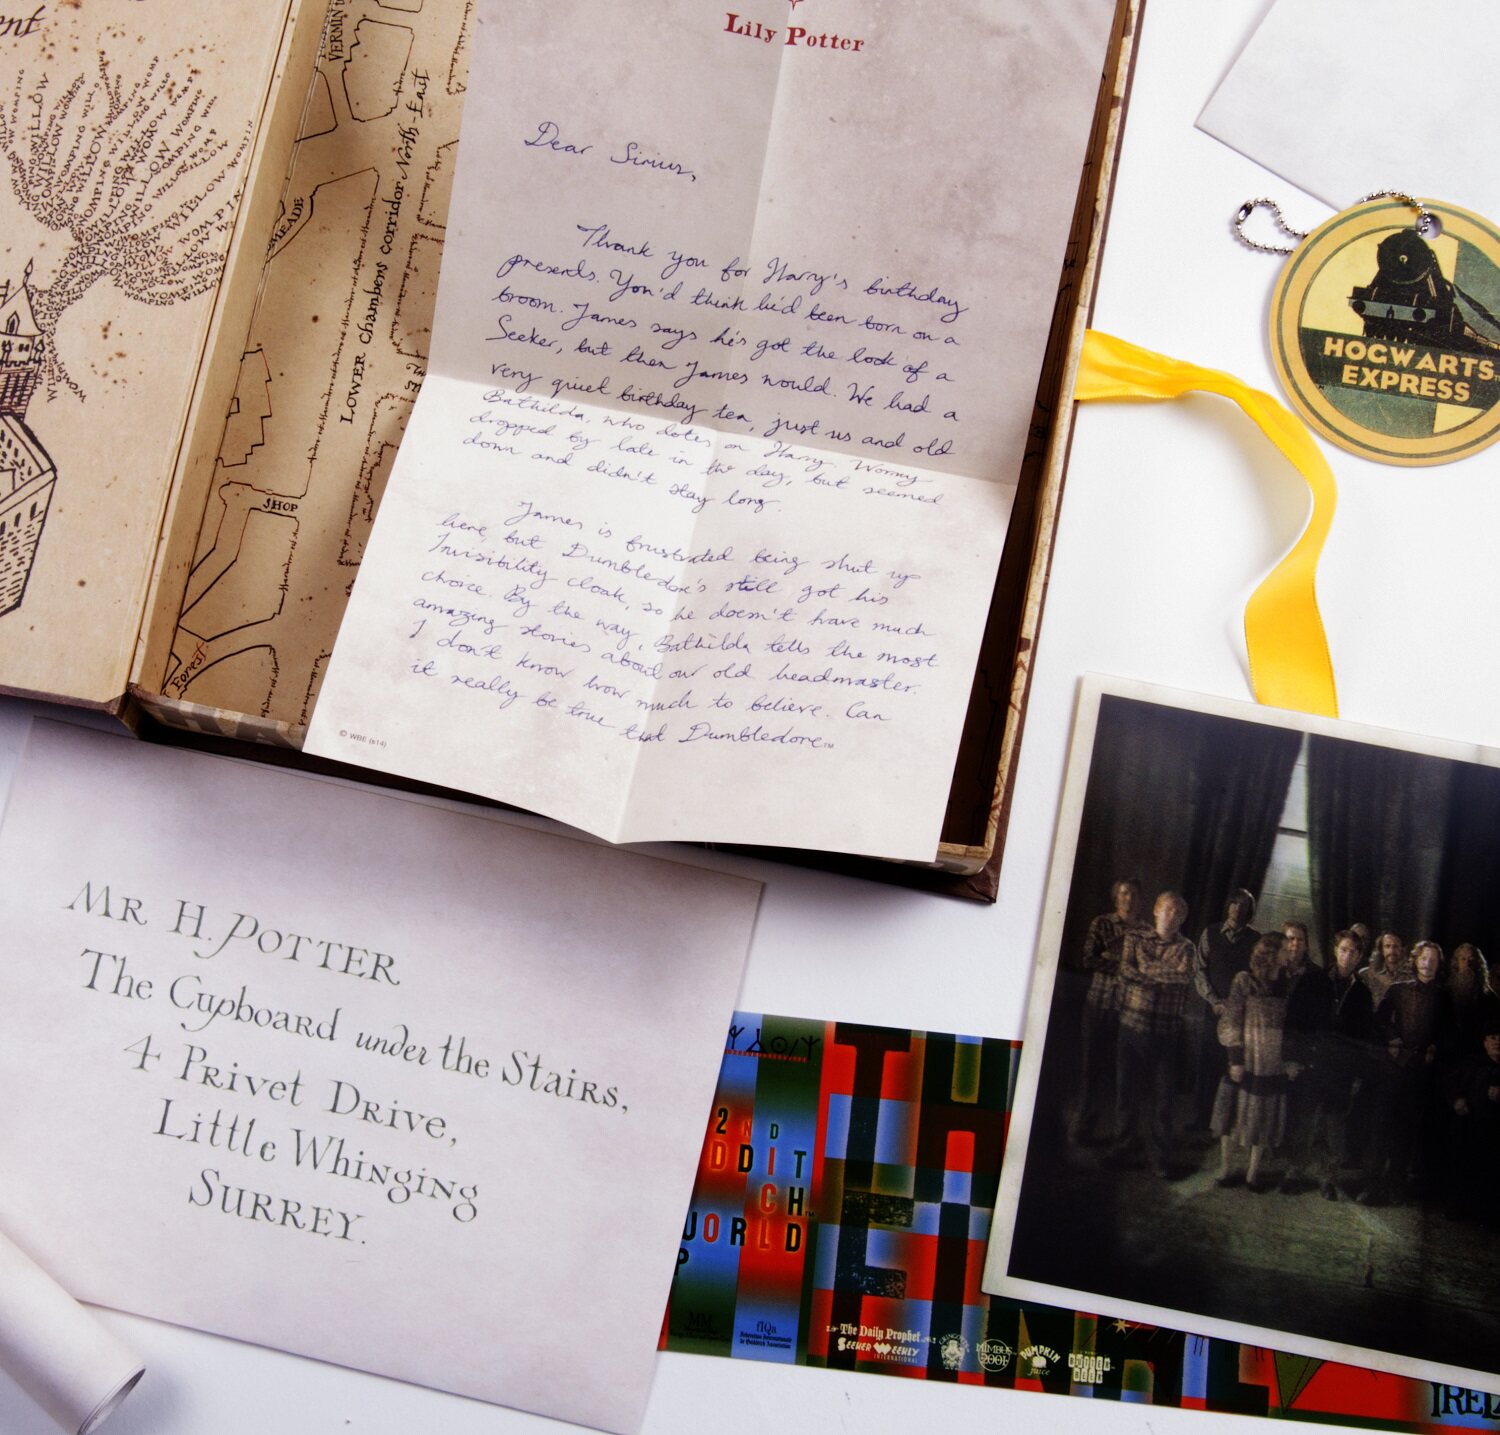 Lily Potter
Dear Sirius,
Thank you for Harry's birthday
presents. You'd think he'd been born on a
broom. James says he's got the look of a
Seeker, but then James would. We had a
very quiet birthday tea, just us and old
Bathilda, who dotes on Harry. Wormy
dropped by late in the day, but seemed
down and didn't stay long.
James is frustrated being shut up
here, but Dumbledore's still got his
Invisibility cloak, so he doesn't have much
choice. By the way, Bathilda tells the most
amazing stories about our old headmaster.
I don't know how much to believe. Can
it really be true that Dumbledore™
© WBE (s14)
ent
WOMPING WILLOW
VERMIN
MEADE
LOWER chambers corridor North-East
SHOP
Forest
HOGWARTS
EXPRESS
MR H. POTTER
The Cupboard under the Stairs,
4 Privet Drive,
Little Whinging
SURREY.
2ND
DDITCH™
WORLD
P
MM
fIQa
The Daily Prophet
SEEKER WEEKLY
INTERNATIONAL
NIMBUS
2001
PUMPKIN
juice
BUTTER
BEER
IREL